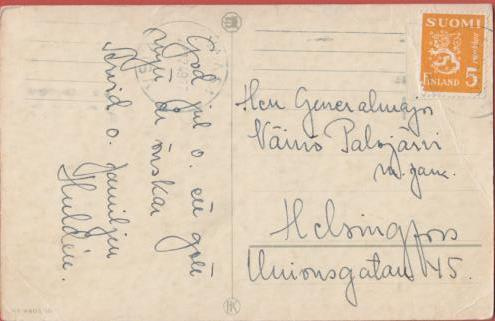 God jul o. ett gott
nytt år önskar
Arvid o. familjen
Huldén.
SUOMI
FINLAND
5
markkaa
Herr Generalmajor
Väinö Palojärvi
m. fam.
Helsingfors
Unionsgatan 45.